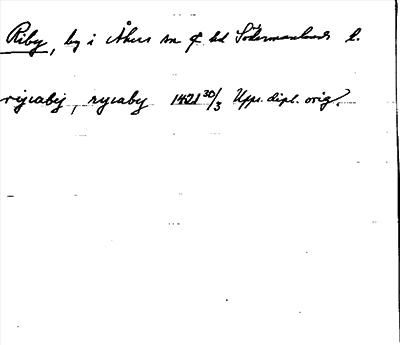 Riby, by i Åkers sn o hd Södermanlands l.
rijcabij, rycaby 1421 30/3 Upps. dipl. orig.